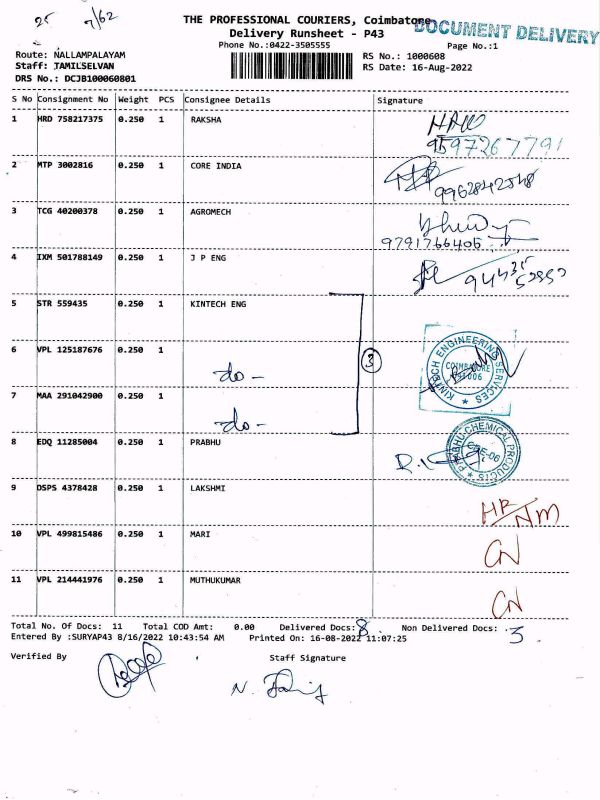 25 7/62
THE PROFESSIONAL COURIERS, Coimbatore
DOCUMENT DELIVERY
Delivery Runsheet - P43
Phone No.:0422-3505555
Page No.:1
Route: NALLAMPALAYAM
RS No.: 1000608
Staff: JAMILSELVAN
RS Date: 16-Aug-2022
DRS No.: DCJB100060801
S No Consignment No Weight PCS Consignee Details Signature
1 HRD 758217375 0.250 1 RAKSHA
9597267791
2 MTP 3002816 0.250 1 CORE INDIA
9962842548
3 TCG 40200378 0.250 1 AGROMECH
9791766406
4 IXM 501788149 0.250 1 J P ENG
5 STR 559435 0.250 1 KINTECH ENG
6 VPL 125187676 0.250 1 do -
3
KINTECH ENGINEERING SERVICES
COIMBATORE
7 MAA 291042900 0.250 1 do -
8 EDQ 11285004 0.250 1 PRABHU
PRABHU CHEMICAL PRODUCTS
CBE-06
9 DSPS 4378428 0.250 1 LAKSHMI
10 VPL 499815486 0.250 1 MARI CN
11 VPL 214441976 0.250 1 MUTHUKUMAR CN
Total No. Of Docs: 11 Total COD Amt: 0.00 Delivered Docs: 8 Non Delivered Docs: 3
Entered By :SURYAP43 8/16/2022 10:43:54 AM Printed On: 16-08-2022 11:07:25
Verified By Staff Signature